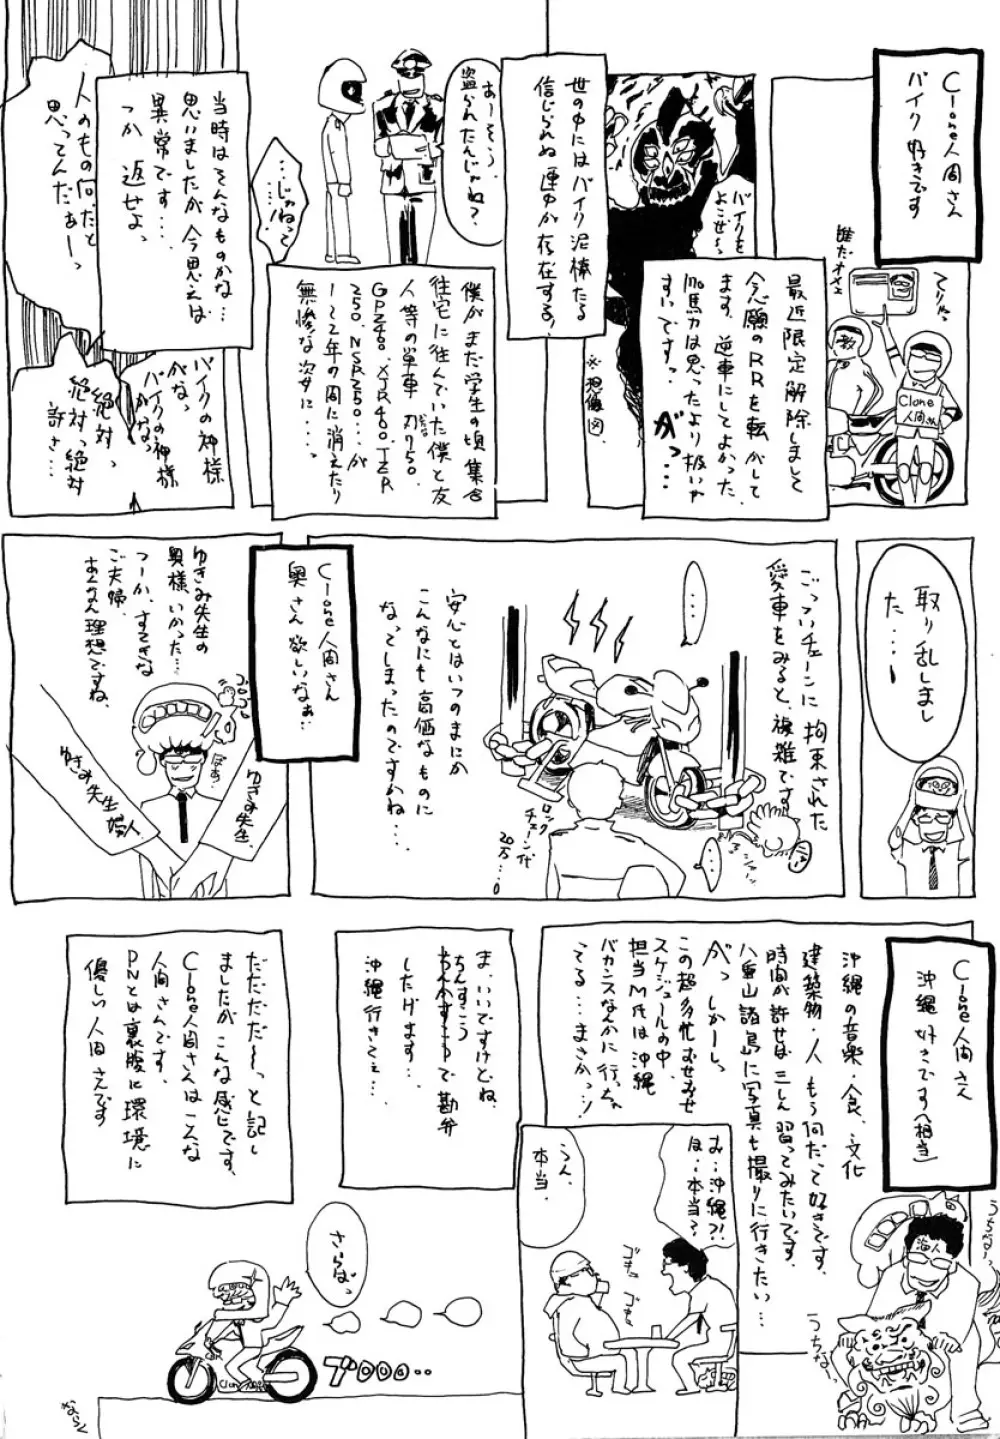 Clone人間さん
バイク好きです
てりゃっ
誰だオメェ
教
Clone
人間さん
最近限定解除しまして
念願のRRを転がして
ます。逆車にしてよかった。
馬力は思ったより扱いや
すいです。
ダっ…
バイクを
よこせ〜っ
※想像図
世の中にはバイク泥棒たる
信じられぬ連中が存在する!
あーそう。
盗られたんじゃね?
…じゃねって
…!
僕がまだ学生の頃集合
住宅に住んでいた僕と友
人等の単車 刀750.
GPZ400.XJR400.TZR
250.NSR250…が
1〜2年の間に消えたり
無惨な姿に…。
当時はそんなものかな…
思いましたが今思えば
異常です…。
つか 返せよっ
人のもの何だと
思ってんだぁーっ
バイクの神様
がなっ
バイクの神様
がなっ
絶対っ
絶対っ絶対
許さ…
取り乱しまし
た…!
ごっついチェーンに拘束された
愛車をみると、複雑です。
…
…
ロック
チェーン代
20万…
安心とはいつのまにか
こんなにも高価なものに
なってしまったのですかね…
Clone人間さん
奥さん欲しいなぁ…
ゆきみ先生の
奥様、いかった…
つーか、すてきな
ご夫婦。
あんなん理想ですね。
ぽぁ〜
ゆきみ先生
ゆきみ先生
婦人
Clone人間さん
沖縄好きです(相当)
沖縄の音楽・食、文化
建築物・人 もう何だって好きです。
時間が許せば三しん習ってみたいです。
八重山諸島に写真も撮りに行きたい…
がっ しかーし
この超多忙
スケジュールの中、
担当M氏は沖縄
バカンスなんかに行っちゃ
てる…まさかっ…!
お…沖縄?!
ほ…本当?
うん、
本当。
ゴキュ
ゴキュ
海人
うちな〜
うちな〜
ま、いいですけどね、
ちんすこうで勘弁
したげます…
沖縄行きてぇ…
だだだだ〜っと記し
ましたがこんな感じです。
Clone人間さんはこんな
人間さんです。
PNとは裏腹に環境に
優しい人間さんです
さらばっ
ブロロロ…
ならく